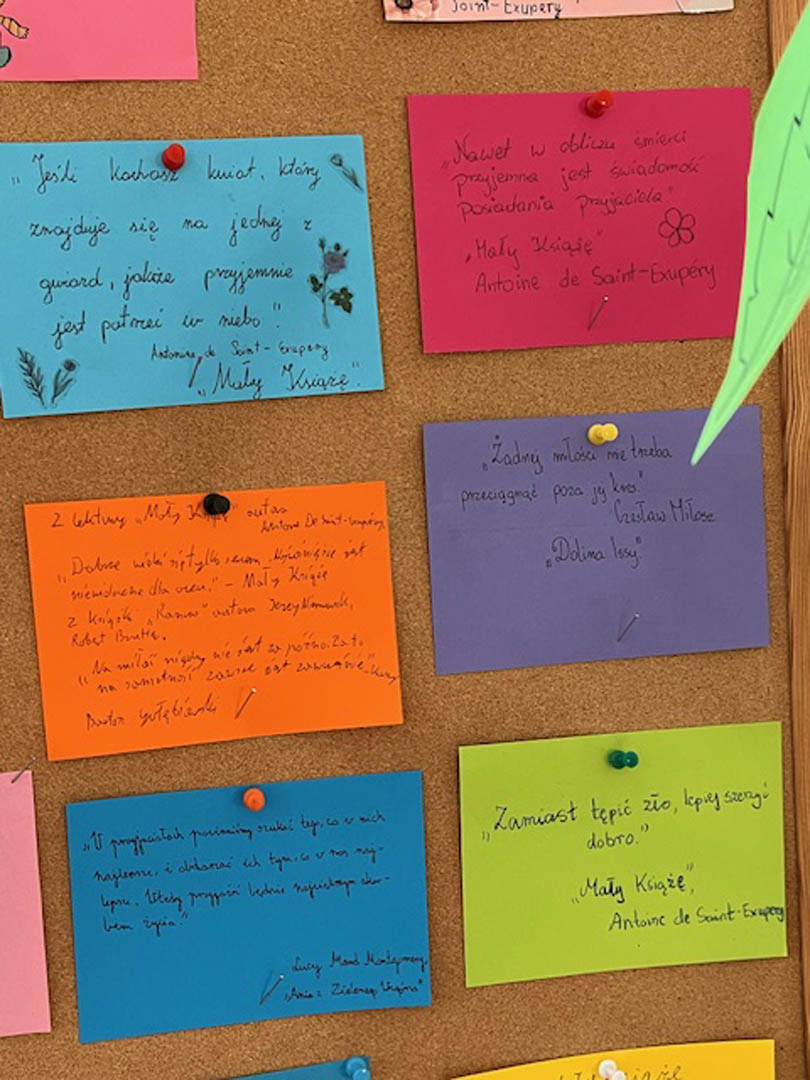 Saint-Exupery
„Jeśli kochasz kwiat, który
znajduje się na jednej z
gwiazd, jakże przyjemnie
jest patrzeć w niebo".
Antoine de Saint-Exupery
„Mały Książę".
„Nawet w obliczu śmierci
przyjemna jest świadomość
posiadania przyjaciela"
„Mały Książę"
Antoine de Saint-Exupéry
„Żadnej miłości nie trzeba
przeciągnąć poza jej kres."
Czesław Miłosz
„Dolina Issy."
Z lektury „Mały Książę" autora
Antoine De Saint-Exupéry,
„Dobrze widzi się tylko sercem. Najważniejsze jest
niewidoczne dla oczu." – Mały Książę
Z książki „Kaniou" autora
„Na miłość nigdy nie jest za późno, za to
na samotność zawsze jest za wcześnie"
„W przyjaciołach powinniśmy szukać tego, co w nich
najlepsze, i obdarzać ich tym, co w nas naj-
lepsze. Wtedy przyjaźń będzie największym skar-
bem życia."
Lucy Maud Montgomery,
„Ania z Zielonego Wzgórza"
„Zamiast tępić zło, lepiej szerzyć
dobro."
„Mały Książę",
Antoine de Saint-Exupery